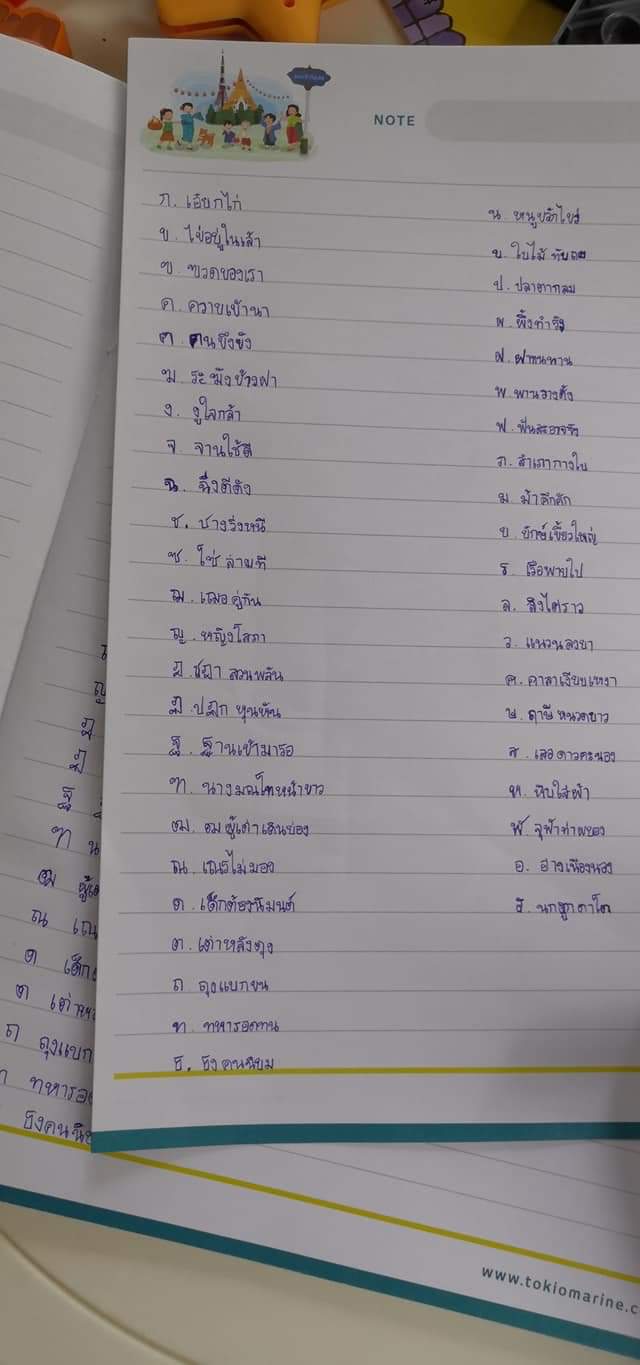 NOTE
ก. เอ๊ยกไก่
ข. ไข่อยู่ในเล้า
ฃ. ฃวดของเรา
ค. ควายเข้านา
ฅ. ฅนขึงขัง
ฆ. ระฆังข้างฝา
ง. งูใจกล้า
จ. จานใช้ดี
ฉ. ฉิ่งตีดัง
ช. ช้างวิ่งหนี
ซ. โซ่ล่ามที
ฌ. เฌอคู่กัน
ญ. หญิงโสภา
ฎ. ชฎา สวมพลัน
ฏ. ปฏัก หุนหัน
ฐ. ฐานเข้ามารอ
ฑ. นางมณโฑหน้าขาว
ฒ. ฒผู้เฒ่าเดินย่อง
ณ. เณรไม่มอง
ด. เด็กต้องนิมนต์
ต. เต่าหลังตุง
ถ ถุงแบกขน
ท. ทหารอดทน
ธ. ธง คนนิยม
น. หนูขวักไขว่
บ. ใบไม้ ทับถม
ป. ปลาตากลม
ผ. ผึ้งทำรัง
ฝ. ฝาทนทาน
พ. พานวางตั้ง
ฟ. ฟันสะอาดจัง
ภ. สำเภากางใบ
ม. ม้าคึกคัก
ย. ยักษ์เขี้ยวใหญ่
ร. เรือพายไป
ล. ลิงไต่ราว
ว. แหวนลงยา
ศ. ศาลาเงียบเหงา
ษ. ฤาษี หนวดยาว
ส. เสือดาวคะนอง
ห. หีบใส่ผ้า
ฬ. จุฬาท่าผยอง
อ. อ่างเนืองนอง
ฮ. นกฮูกตาโต
ญ
ฎ
ฏ
ฐ
ฑ น
ฒ ผู้เ
ณ เณ
ด เด็ก
ต เต่าห
ถ ถุงแบก
ทหารอด
ธงคนนิย
www.tokiomarine.c